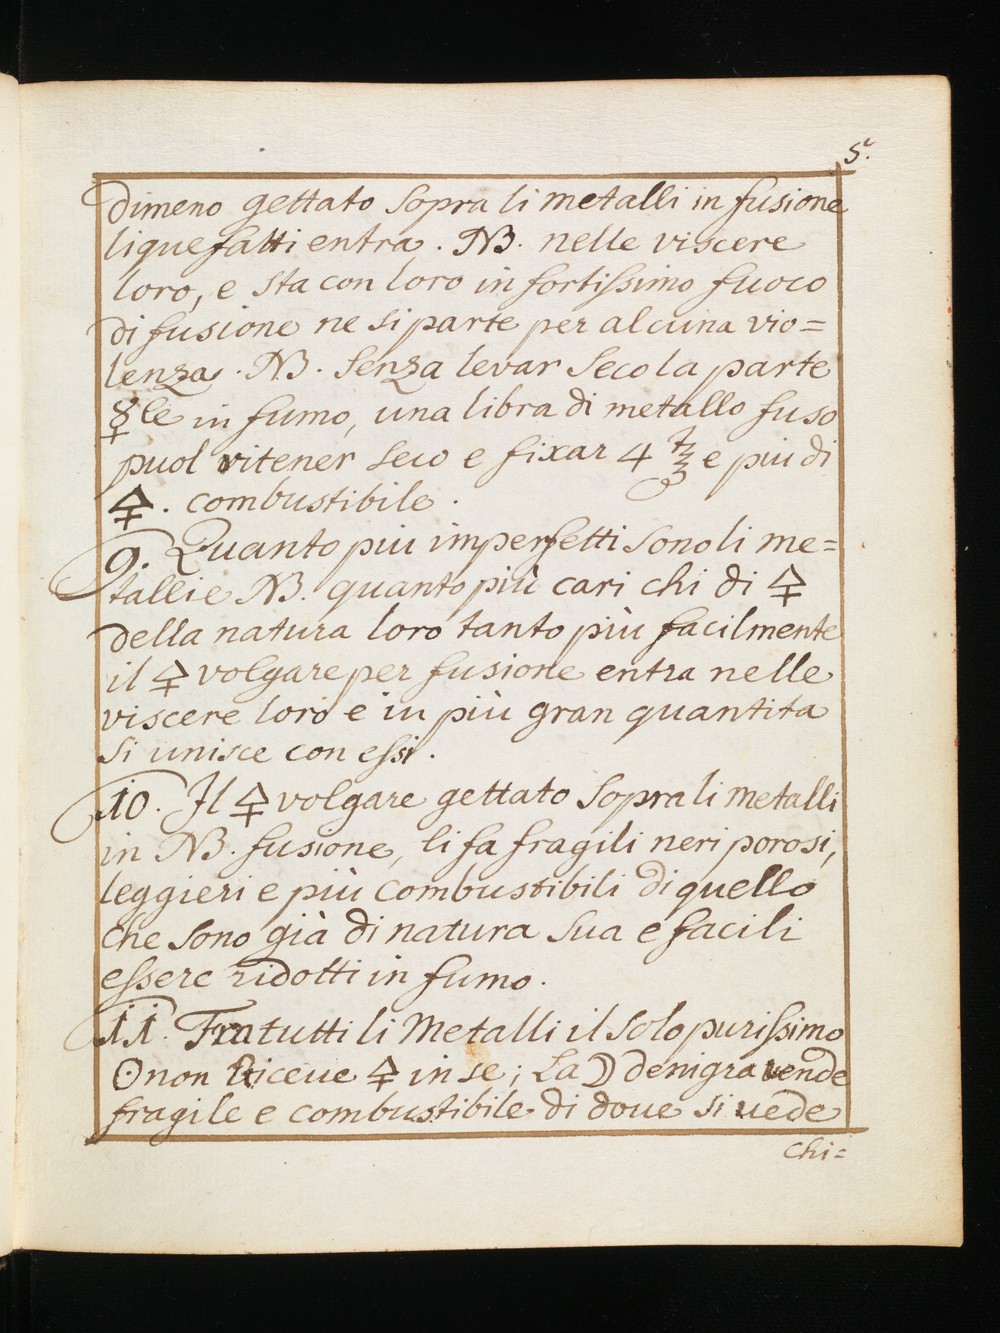 5.
dimeno gettato sopra li metalli in fusione
liquefatti entra. NB. nelle viscere
loro, e sta con loro in fortissimo fuoco
di fusione ne si parte per alcuna vio=
lenza. NB. senza levar seco la parte
☿le in fumo, una libra di metallo fuso
puol ritener seco e fixar 4 ℥ e piu di
🜍. combustibile.
9. Quanto piu imperfetti sono li me=
talli e NB. quanto più cari chi di 🜍
della natura loro tanto più facilmente
il 🜍 volgare per fusione entra nelle
viscere loro e in più gran quantita
si unisce con essi.
10. Il 🜍 volgare gettato sopra li metalli
in NB. fusione, li fa fragili neri porosi,
leggieri e più combustibili di quello
che sono già di natura sua e facili
essere ridotti in fumo.
11. Fra tutti li Metalli il solo purissimo
☉ non riceue 🜍 in se; La ☽ denigra rende
fragile e combustibile di doue si uede
Chi=